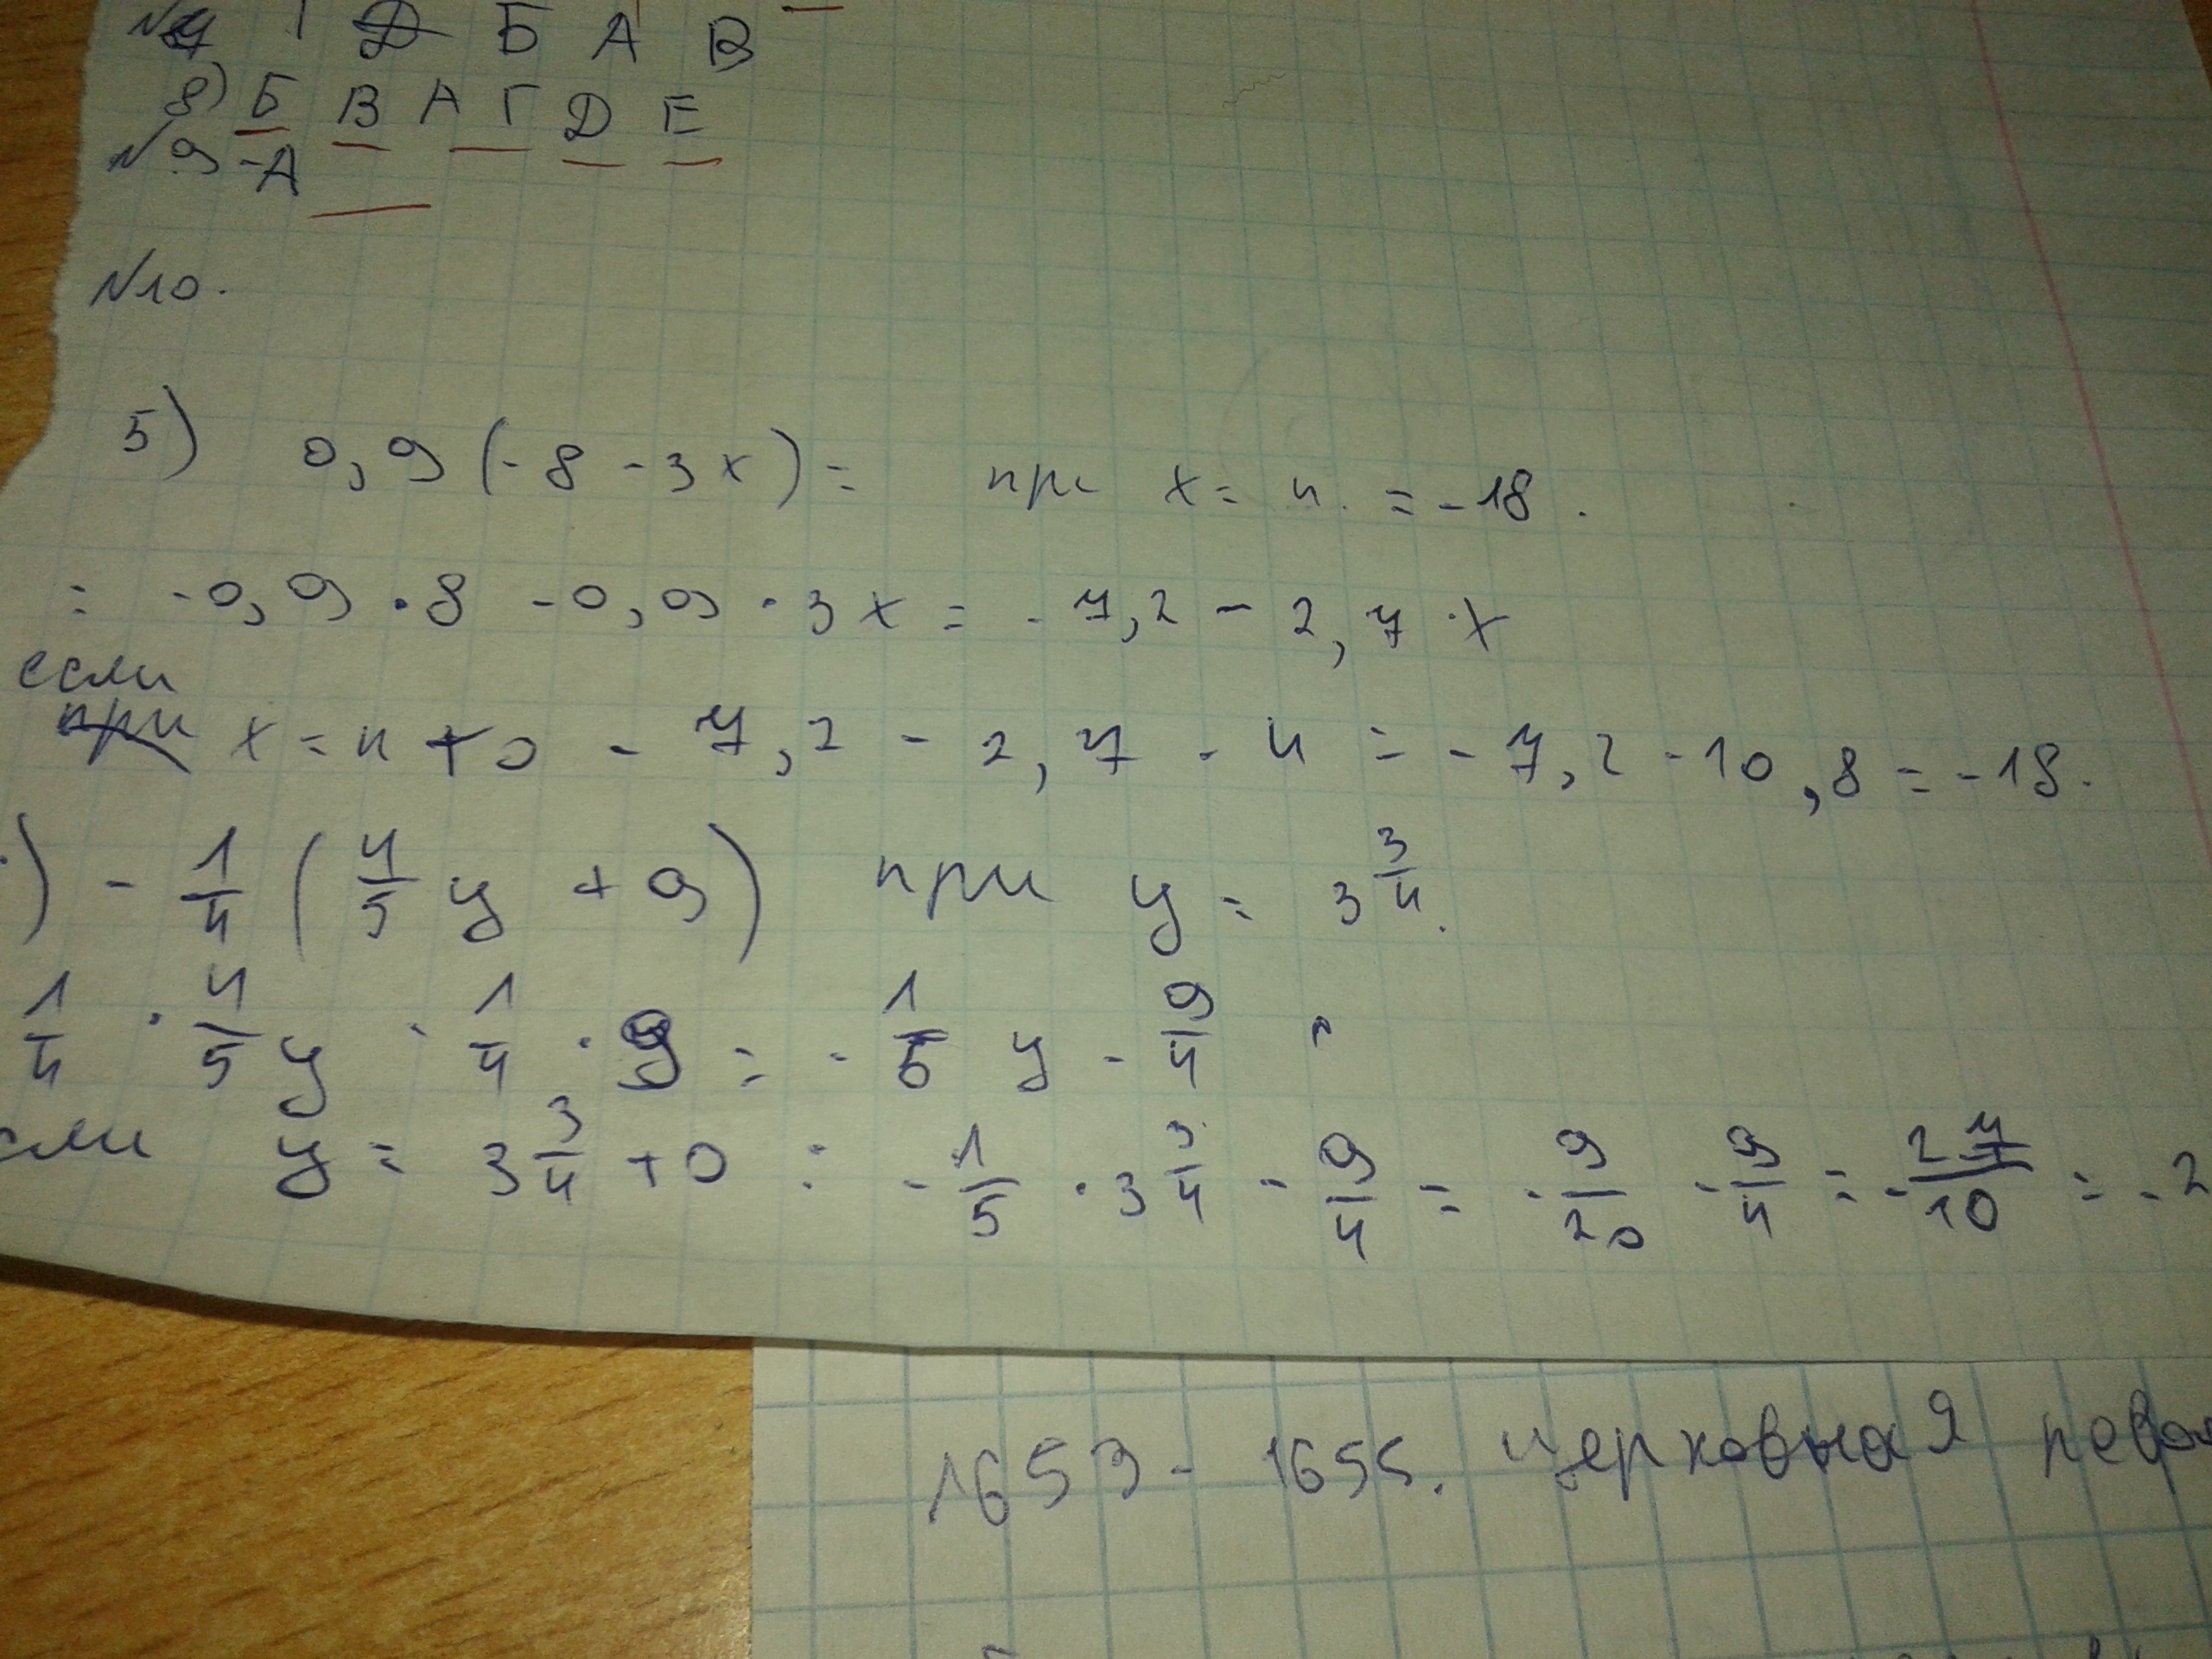 Д Б А В
8) Б В А Г Д Е
№9 -А
№10.
5) 0,9(-8-3x)= при x=4. =-18.
= -0,9·8-0,9·3x=-7,2-2,7·x
если
при x=4 то -7,2-2,7·4=-7,2-10,8=-18.
) -1/4(4/5y+9) при y=3 3/4.
1/4·4/5y-1/4·9=-1/5y-9/4
сли y=3 3/4 то: -1/5·3 3/4-9/4=-9/20-9/4=-27/10=-2
1653-1655. церковная